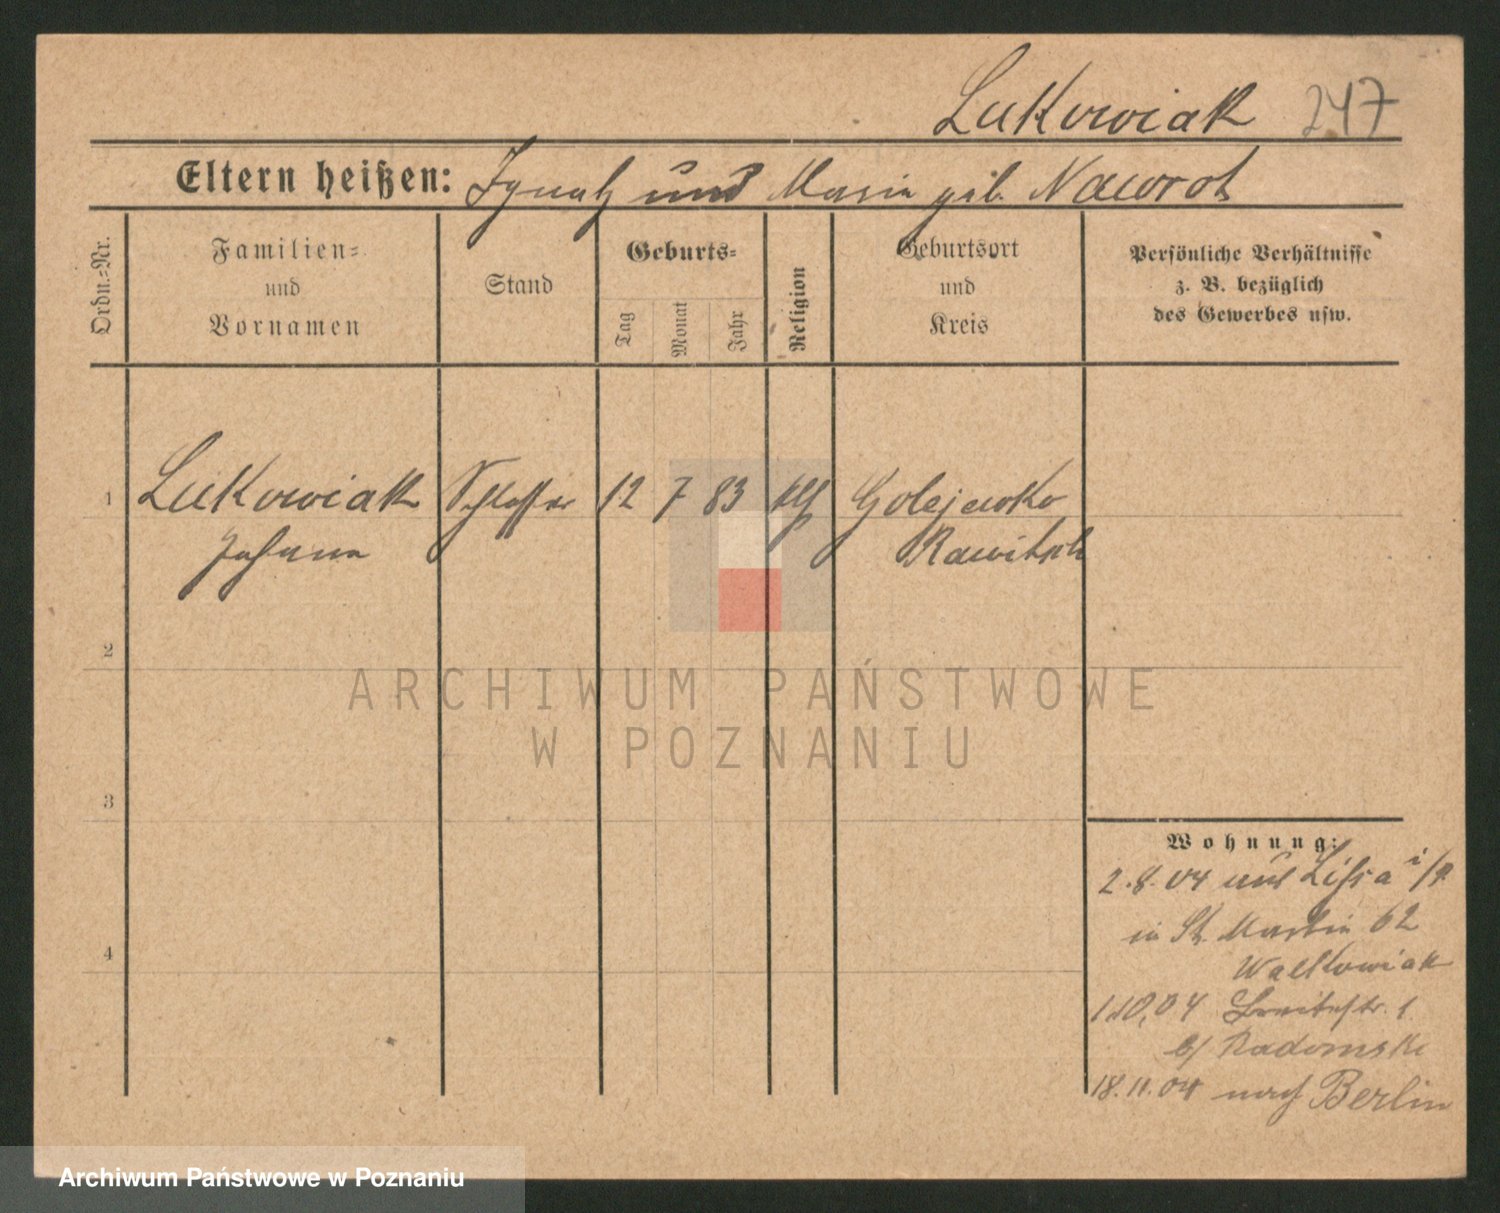 Lukowiak 247
Eltern heißen: Ignatz und Maria geb. Nawrot
Ordn.-Nr.
Familien-
und
Vornamen
Stand
Geburts-
Tag
Monat
Jahr
Religion
Geburtsort
und
Kreis
Persönliche Verhältnisse
z. B. bezüglich
des Gewerbes usw.
1 Lukowiak Schlosser 12 7 83 Golejewko
Johann Rawitsch
2
3
4
ARCHIWUM PAŃSTWOWE
W POZNANIU
Wohnung:
2.8.04 aus Lissa i/P.
in St. Martin 62
Walkowiak
1.10.04 Breitestr. 1.
b/ Radomski
18.11.04 nach Berlin
Archiwum Państwowe w Poznaniu